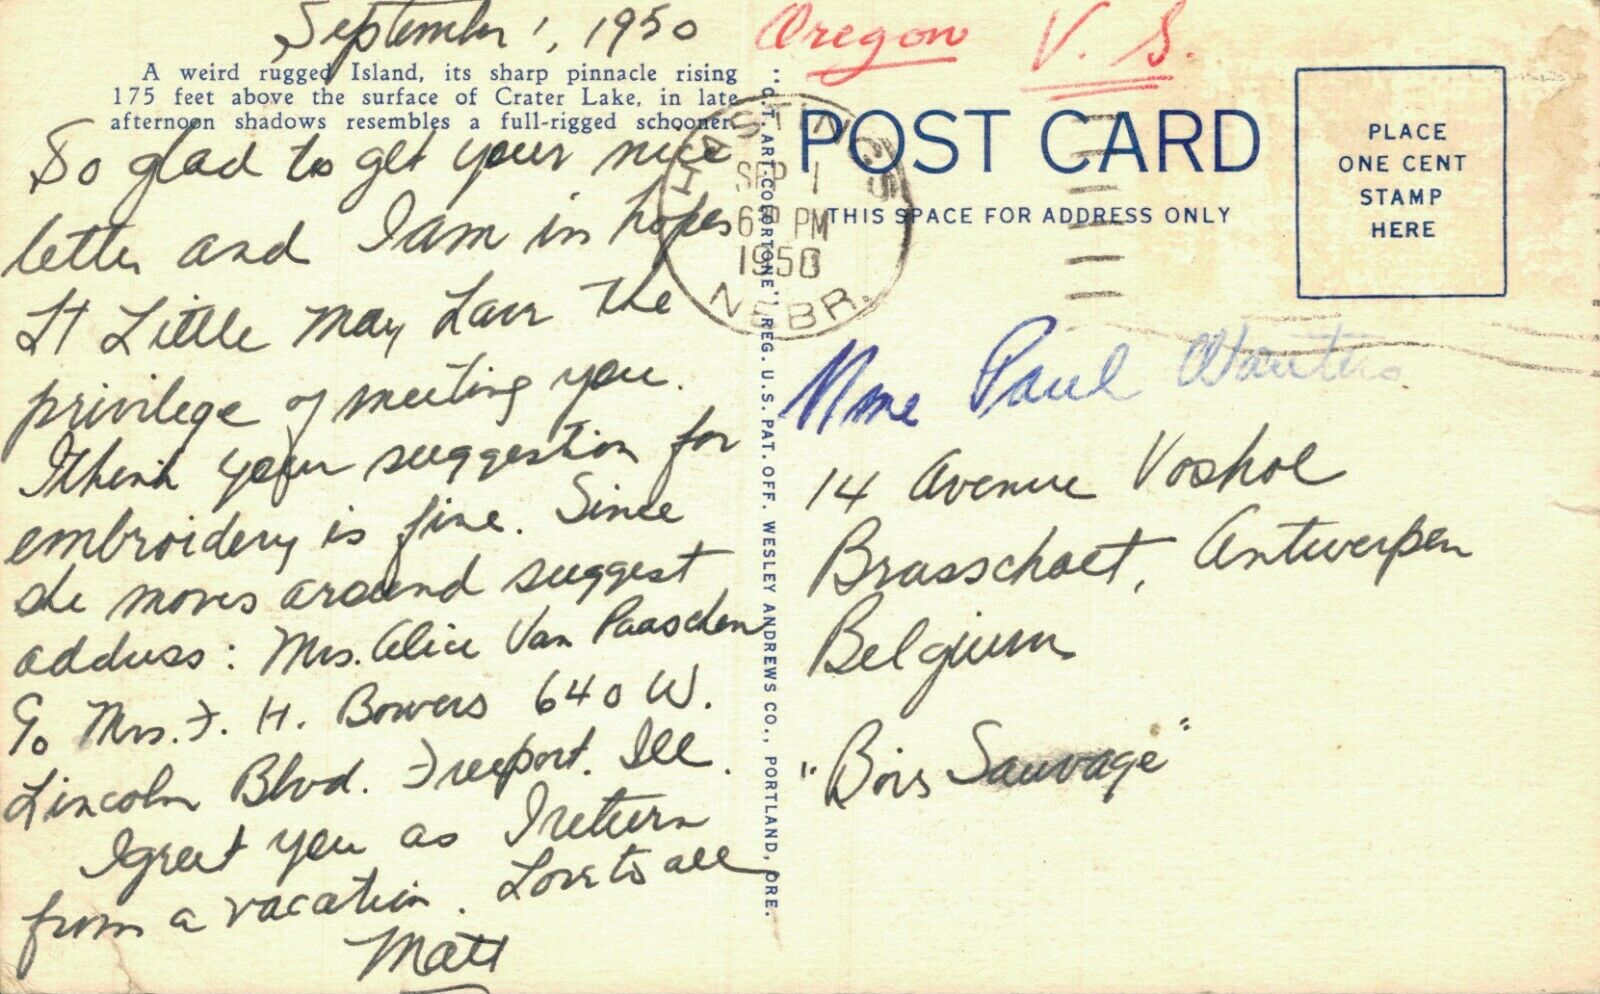 September 1, 1950
A weird rugged Island, its sharp pinnacle rising
175 feet above the surface of Crater Lake, in late
afternoon shadows resembles a full-rigged schooner.
So glad to get your nice
letter and I am in hopes
Lt Little may have the
privilege of meeting you.
I think your suggestion for
embroidery is fine. Since
she moves around suggest
address: Mrs. Alice Van Paaschen
% Mrs. F. H. Bowers 640 W.
Lincoln Blvd. Freeport. Ill.
I greet you as I return
from a vacation. Love to all
Matt
"C.T. ART-COLORTONE" REG. U.S. PAT. OFF. WESLEY ANDREWS CO., PORTLAND, ORE.
Oregon U. S.
HASTINGS
SEP 1
PM
1950
NEBR.
POST CARD
THIS SPACE FOR ADDRESS ONLY
PLACE
ONE CENT
STAMP
HERE
Mme Paul Wauters
14 Avenue Voshol
Brasschaet, Antwerpen
Belgium
"Bois Sauvage"